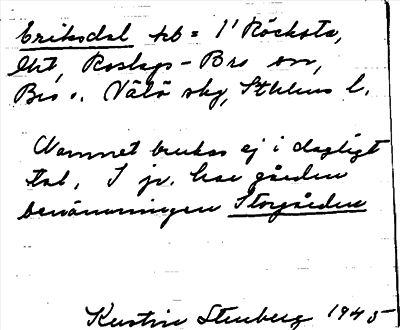 Eriksdal hb = 1' Röcksta,
Ekt, Roslags-Bro sn,
Bro o. Vätö skg, Sthlms l.
Namnet brukas ej i dagligt
tal, I jv. har gården
benämningen Storgården
Kerstin Stenberg 1945